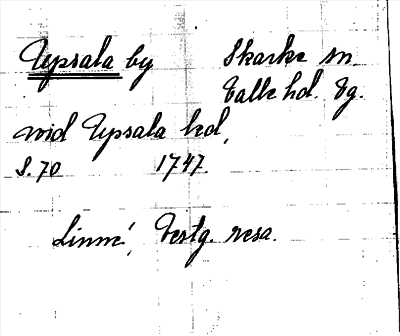 Upsala by Skarke sn.
Valle hd. Vg.
wid Upsala hed,
S. 70 1747.
Linné, Vestg. resa.